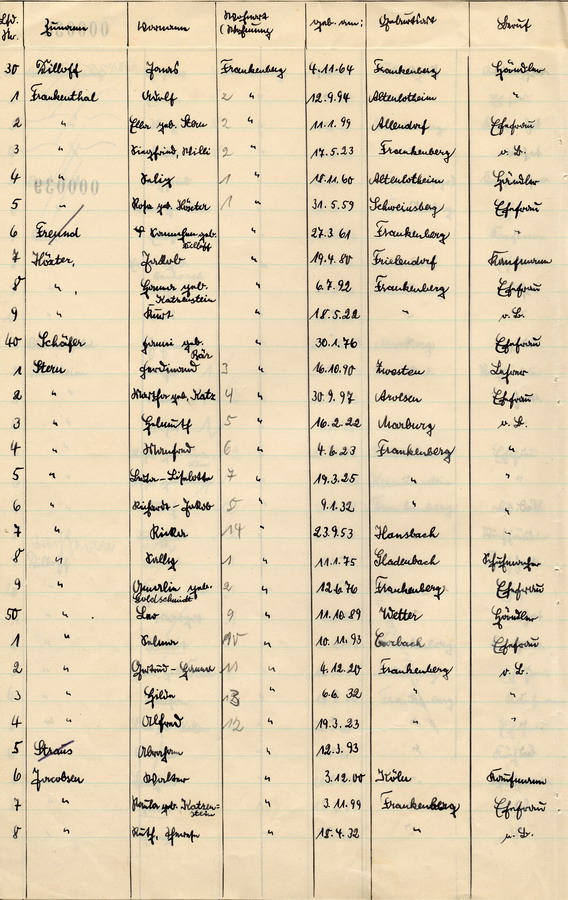 Lfd. Nr. Zuname Vorname Wohnort (Wohnung geb. am: Geburtsort Beruf
30 Willoff Jonas Frankenberg 4.11.64 Frankenberg Händler
1 Frankenthal Adolf 2 " 12.9.94 Altenlotheim "
2 " Ella geb. Stern 2 " 11.1.99 Allendorf Ehefrau
3 " Siegfried, Willi 2 " 17.5.23 Frankenberg o. B.
4 " Selig 1 " 18.11.60 Altenlotheim Händler
5 " Rosa geb. Höxter 1 " 31.5.59 Schweinsberg Ehefrau
6 Freund geb. " 27.3.61 Frankenberg "
7 Höxter, Jakob " 19.4.80 Frielendorf Kaufmann
8 " , Hanna geb. " 6.7.92 Frankenberg Ehefrau
Katzenstein
9 " Kurt " 18.5.22 " o. B.
40 Schäfer Fanni geb. " 30.1.76 Ehefrau
Bär
1 Stern Ferdinand 3 " 16.10.90 Zwesten Lehrer
2 " Martha geb. Katz 4 " 30.9.97 Arolsen Ehefrau
3 " Helmuth 5 " 16.2.22 Marburg o. B.
4 " Manfred 6 " 4.6.23 Frankenberg "
5 " Liselotte 7 " 19.3.25 " "
6 " Richard-Jakob " 9.1.32 " "
7 " Ricka 14 " 23.9.53 "
8 " Sally 1 " 11.1.75 Gladenbach Schuhmacher
9 " Amalie geb. 2 " 12.6.76 Frankenberg Ehefrau
Goldschmidt
50 " Leo 9 " 11.10.89 Wetter Händler
1 " Selma 10 " 10.11.93 Corbach Ehefrau
2 " Gertrud-Hanna 11 " 4.12.20 Frankenberg o. B.
3 " Hilda 13 " 6.6.32 " "
4 " Alfred 12 " 19.3.23 " "
5 Straus Abraham " 12.3.93
6 Jacobsen Walter " 3.12.00 Köln Kaufmann
7 " Paula geb. Katzen- " 3.11.99 Frankenberg Ehefrau
stein
8 " Ruth, Therese " 18.4.32 " o. B.